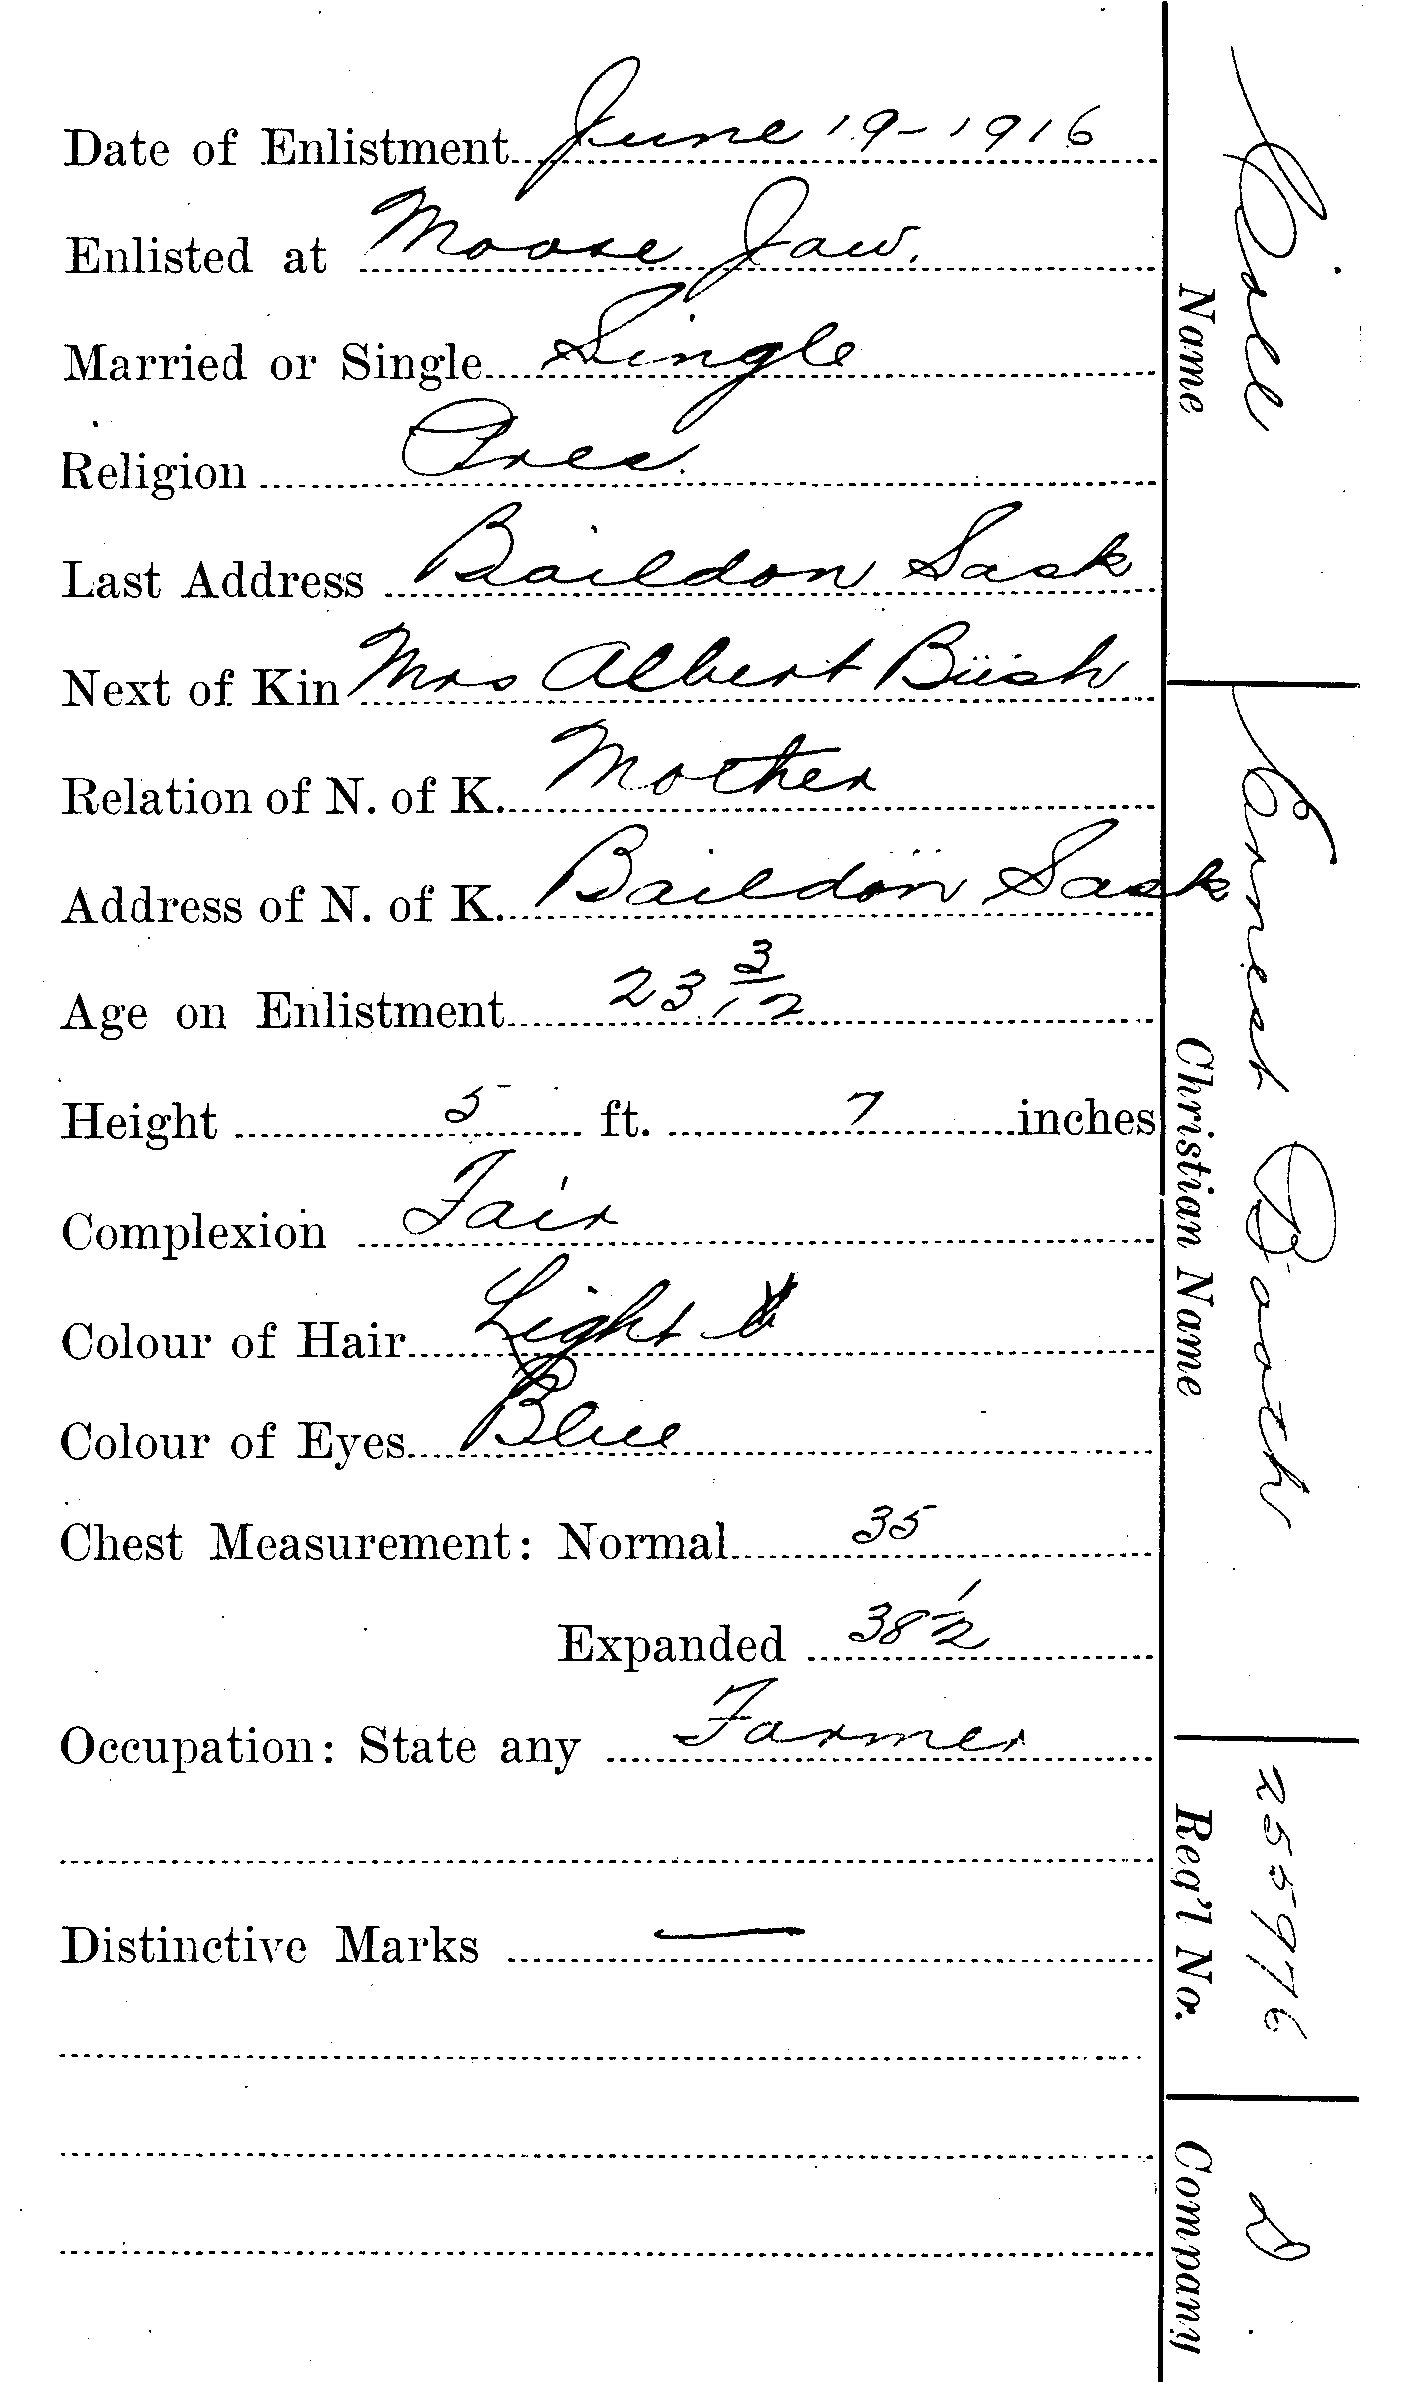 Date of Enlistment June 19-1916
Enlisted at Moose Jaw.
Married or Single Single
Religion Pres.
Last Address Baildon Sask
Next of Kin Mrs Albert Bush
Relation of N. of K. Mother
Address of N. of K. Baildon Sask
Age on Enlistment 23 3/12
Height 5 ft. 7 inches
Complexion Fair
Colour of Hair Light
Colour of Eyes Blue
Chest Measurement: Normal 35
Expanded 38 1/2
Occupation: State any Farmer
Distinctive Marks —
Name
Ernest Booth
Christian Name
255976
Reg'l No.
D.
Company